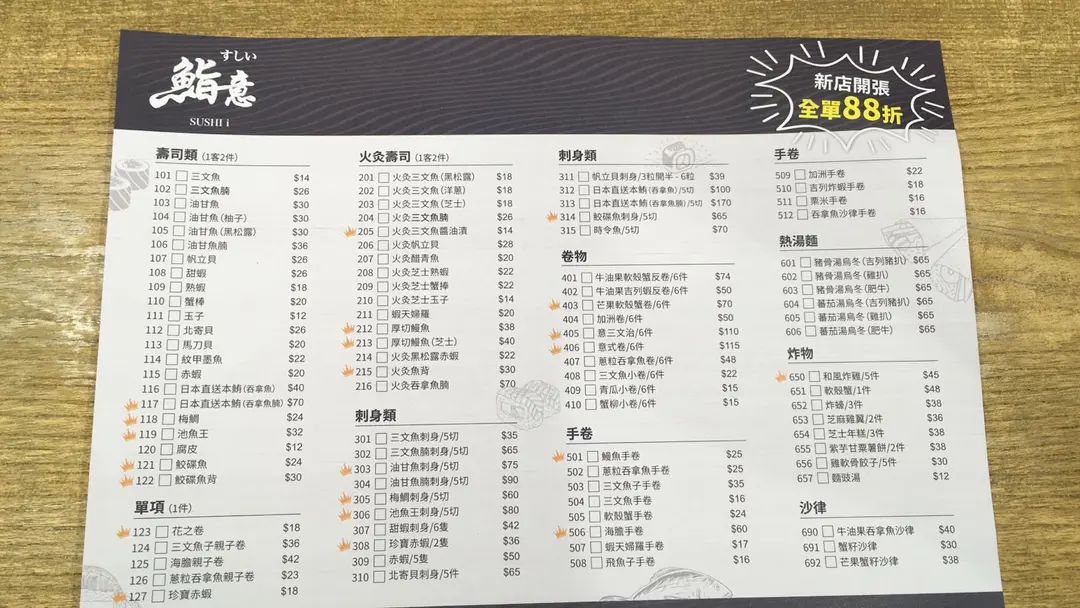 すしい
鮨意
SUSHI i
新店開張
全單88折
壽司類 (1客2件)
101 三文魚 $14
102 三文魚腩 $26
103 油甘魚 $30
104 油甘魚(柚子) $30
105 油甘魚(黑松露) $30
106 油甘魚腩 $36
107 帆立貝 $26
108 甜蝦 $26
109 熟蝦 $18
110 蟹棒 $20
111 玉子 $12
112 北寄貝 $26
113 馬刀貝 $20
114 紋甲墨魚 $22
115 赤蝦 $20
116 日本直送本鮪(吞拿魚) $40
117 日本直送本鮪(吞拿魚腩) $70
118 梅鯛 $24
119 池魚王 $32
120 腐皮 $12
121 鮫碟魚 $24
122 鮫碟魚背 $30
單項 (1件)
123 花之卷 $18
124 三文魚子親子卷 $36
125 海膽親子卷 $42
126 蔥粒吞拿魚親子卷 $23
127 珍寶赤蝦 $18
火灸壽司 (1客2件)
201 火灸三文魚(黑松露) $18
202 火灸三文魚(洋蔥) $18
203 火灸三文魚(芝士) $18
204 火灸三文魚腩 $26
205 火灸三文魚醬油漬 $14
206 火灸帆立貝 $28
207 火灸醋青魚 $20
208 火灸芝士熟蝦 $22
209 火灸芝士蟹捧 $22
210 火灸芝士玉子 $14
211 蝦天婦羅 $20
212 厚切鰻魚 $38
213 厚切鰻魚(芝士) $40
214 火灸黑松露赤蝦 $22
215 火灸魚背 $30
216 火灸吞拿魚腩 $70
刺身類
301 三文魚刺身/5切 $35
302 三文魚腩刺身/5切 $65
303 油甘魚刺身/5切 $75
304 油甘魚腩刺身/5切 $90
305 梅鯛刺身/5切 $60
306 池魚王刺身/5切 $80
307 甜蝦刺身/6隻 $42
308 珍寶赤蝦/2隻 $36
309 赤蝦/5隻 $50
310 北寄貝刺身/5件 $65
刺身類
311 帆立貝刺身/3粒開半 - 6粒 $39
312 日本直送本鮪(吞拿魚)/5切 $100
313 日本直送本鮪(吞拿魚腩)/5切 $170
314 鮫碟魚刺身/5切 $65
315 時令魚/5切 $70
卷物
401 牛油果軟殼蟹反卷/6件 $74
402 牛油果吉列蝦反卷/6件 $50
403 芒果軟殼蟹卷/6件 $70
404 加洲卷/6件 $50
405 意三文治/6件 $110
406 意式卷/6件 $115
407 蔥粒吞拿魚卷/6件 $48
408 三文魚小卷/6件 $22
409 青瓜小卷/6件 $15
410 蟹柳小卷/6件 $15
手卷
501 鰻魚手卷 $25
502 蔥粒吞拿魚手卷 $25
503 三文魚子手卷 $35
504 三文魚手卷 $16
505 軟殼蟹手卷 $24
506 海膽手卷 $60
507 蝦天婦羅手卷 $17
508 飛魚子手卷 $16
手卷
509 加洲手卷 $22
510 吉列炸蝦手卷 $18
511 粟米手卷 $16
512 吞拿魚沙律手卷 $16
熱湯麵
601 豬骨湯烏冬(吉列豬扒) $65
602 豬骨湯烏冬(雞扒) $65
603 豬骨湯烏冬(肥牛) $65
604 蕃茄湯烏冬(吉列豬扒) $65
605 蕃茄湯烏冬(雞扒) $65
606 蕃茄湯烏冬(肥牛) $65
炸物
650 和風炸雞/5件 $45
651 軟殼蟹/1件 $48
652 炸蠔/3件 $38
653 芝麻雞翼/2件 $36
654 芝士年糕/3件 $38
655 紫芋甘粟薯餅/2件 $38
656 雞軟骨餃子/5件 $30
657 麵豉湯 $12
沙律
690 牛油果吞拿魚沙律 $40
691 蟹籽沙律 $30
692 芒果蟹籽沙律 $38